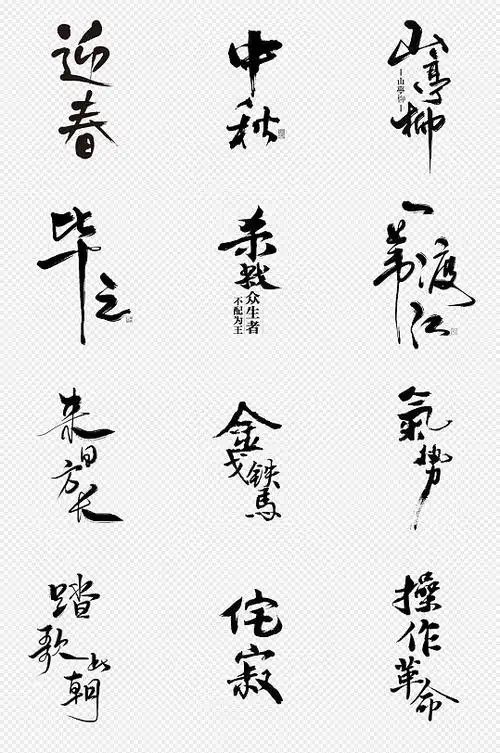 迎春
中秋
山亭柳
山亭柳
毕之
杀戮
众生者
不配为王
一苇渡江
来日方长
金戈铁馬
氣势
踏歌朝
侘寂
操作革命